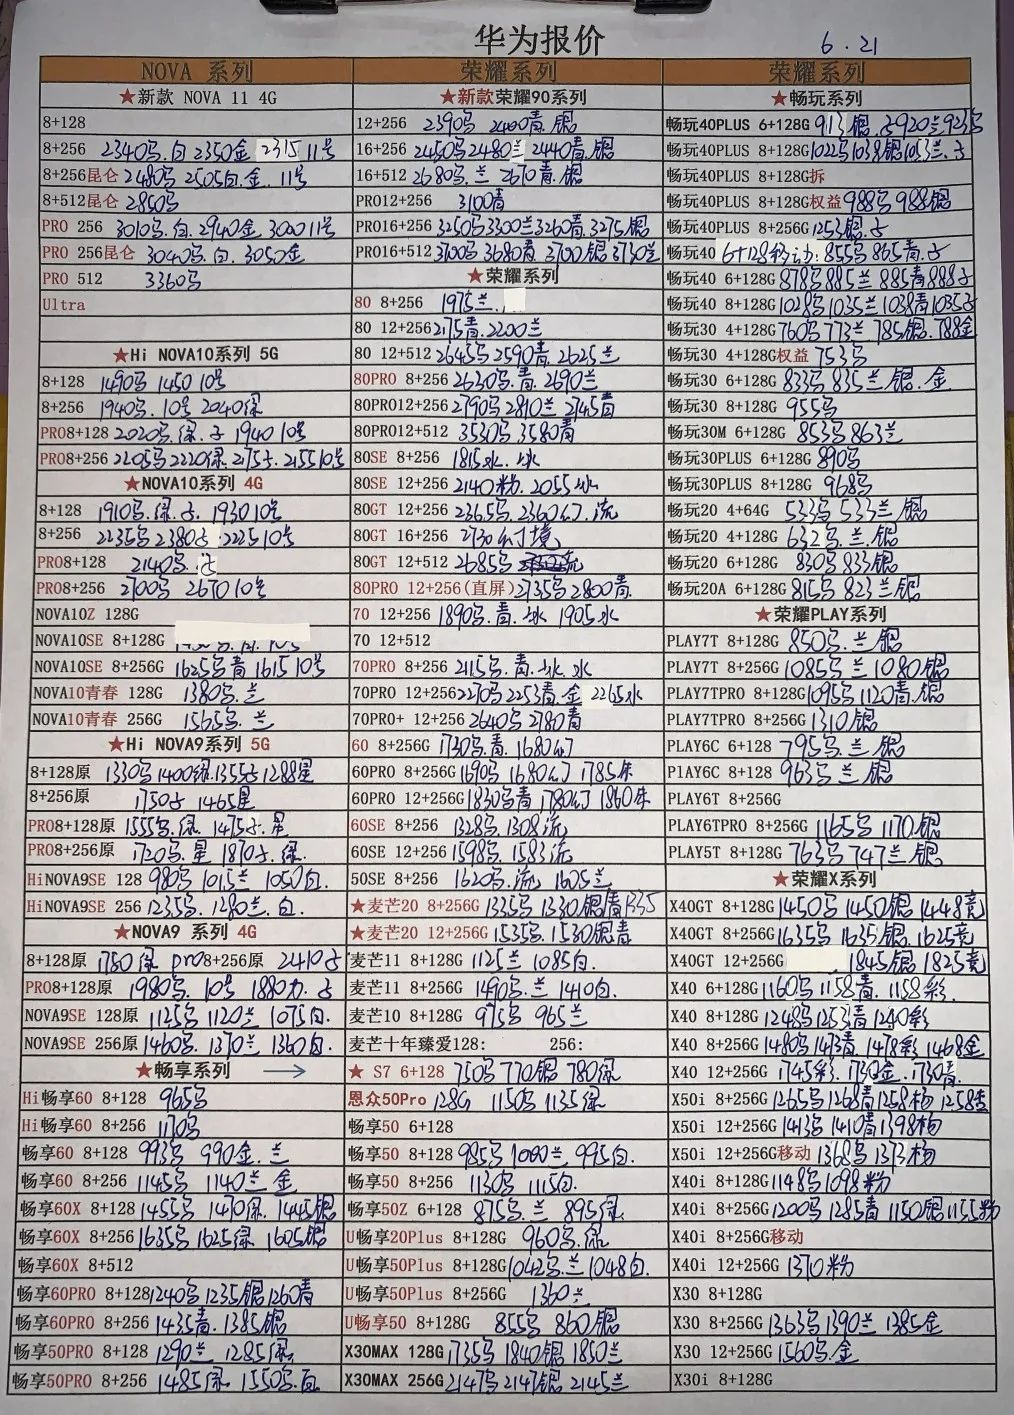 华为报价 6.21
NOVA 系列
★新款 NOVA 11 4G
8+128
8+256 2340乌.白 2350金 2315 11号
8+256昆仑 2480乌 2505白.金. 11号
8+512昆仑 2850乌
PRO 256 3010乌.白. 2940金 3000 11号
PRO 256昆仑 3040乌.白. 3050金
PRO 512 3360乌
Ultra
★Hi NOVA10系列 5G
8+128 1490乌 1450 10号
8+256 1940乌. 10号 2040绿
PRO8+128 2020乌.绿.子 1940 10号
PRO8+256 2205乌 2220绿. 2175子. 2155 10号
★NOVA10系列 4G
8+128 1910乌.绿.子. 1930 10号
8+256 2235乌 2380子 2225 10号
PRO8+128 2140乌.
PRO8+256 2700乌 2670 10号
NOVA10Z 128G
NOVA10SE 8+128G
NOVA10SE 8+256G 1625乌青 1615 10号
NOVA10青春 128G 1380乌.兰
NOVA10青春 256G 1565乌.兰
★Hi NOVA9系列 5G
8+128原 1330乌 1400绿. 1355子 1288星
8+256原 1750子 1465星
PRO8+128原 1555乌.绿. 1475子.星
PRO8+256原 1720乌.星 1870子.绿.
HiNOVA9SE 128 980乌 1015兰 1050白.
HiNOVA9SE 256 1235乌. 1280兰.白.
★NOVA9 系列 4G
8+128原 1750绿 pro8+256原 2410子
PRO8+128原 1980乌. 10号 1880 子
NOVA9SE 128原 1125乌 1120兰 1075白.
NOVA9SE 256原 1460乌. 1370兰 1360白.
★畅享系列 →
Hi畅享60 8+128 965乌
Hi畅享60 8+256 1170乌
畅享60 8+128 993乌 990金.兰
畅享60 8+256 1145乌 1140兰 金
畅享60X 8+128 1455乌 1470绿. 1445银
畅享60X 8+256 1635乌 1625绿 1605银
畅享60X 8+512
畅享60PRO 8+128 1240乌 1235银 1260青
畅享60PRO 8+256 1435青. 1385银
畅享50PRO 8+128 1290兰 1285绿
畅享50PRO 8+256 1485绿 1550乌.白
荣耀系列
★新款荣耀90系列
12+256 2390乌 2400青.银
16+256 2450乌 2480兰 2440青.银
16+512 2680乌.兰 2670青.银
PRO12+256 3100青
PRO16+256 3250乌 3300兰 3260青. 3275银
PRO16+512 3700乌 3680青. 3700银 3730兰
★荣耀系列
80 8+256 1975兰.
80 12+256 2175青. 2200兰
80 12+512 2645乌 2590青. 2625兰
80PRO 8+256 2630乌.青. 2690兰
80PRO12+256 2790乌 2810兰 2745青
80PRO12+512 3530乌 3580青
80SE 8+256 1815水.冰
80SE 12+256 2140粉. 2055冰
80GT 12+256 2365乌. 2360幻.流
80GT 16+256 2730 境
80GT 12+512 2685乌 流
80PRO 12+256(直屏) 2735乌 2800青.
70 12+256 1890乌.青.冰 1905水
70 12+512
70PRO 8+256 2115乌.青.冰.水
70PRO 12+256 2270乌 2253青.金 2265水
70PRO+ 12+256 2640乌 2780青
60 8+256G 1730乌.青. 1680幻
60PRO 8+256G 1690乌 1680幻 1785朱
60PRO 12+256G 1830乌青 1780幻 1860朱
60SE 8+256 1328乌 1308流
60SE 12+256 1598乌. 1583流
50SE 8+256 1620乌.流 1605兰
★麦芒20 8+256G 1335乌 1330银青 1335
★麦芒20 12+256G 1535乌. 1530银青
麦芒11 8+128G 1125兰 1085白.
麦芒11 8+256G 1490乌.兰 1410白.
麦芒10 8+128G 975乌 965兰
麦芒十年臻爱128: 256:
★ S7 6+128 750乌 770银 780绿
恩众50Pro 128G 1150乌 1135绿
畅享50 6+128
畅享50 8+128 985乌 1000兰 995白.
畅享50 8+256 1130乌 1115白.
畅享50Z 6+128 875乌.兰 895绿
U畅享20Plus 8+128G 960乌.绿
U畅享50Plus 8+128G 1042乌.兰 1048白.
U畅享50Plus 8+256G 1360兰
U畅享50 8+128G 855乌 860银
X30MAX 128G 1735乌 1840银 1850兰
X30MAX 256G 2147乌 2147银 2145兰
荣耀系列
★畅玩系列
畅玩40PLUS 6+128G 913银.子920兰923乌
畅玩40PLUS 8+128G 1022乌 1038银 1053兰.子
畅玩40PLUS 8+128G拆
畅玩40PLUS 8+128G权益 988乌 988银
畅玩40PLUS 8+256G 1253银.子
畅玩40 6+128移动: 855乌 865青.子
畅玩40 6+128G 878乌 885兰 885青 888子
畅玩40 8+128G 1028乌 1035兰 1038青 1035子
畅玩30 4+128G 760乌 773兰 785银. 788金
畅玩30 4+128G权益 753乌
畅玩30 6+128G 833乌 835兰.银.金
畅玩30 8+128G 955乌
畅玩30M 6+128G 853乌 863兰
畅玩30PLUS 6+128G 890乌
畅玩30PLUS 8+128G 968乌
畅玩20 4+64G 533乌 533兰 银
畅玩20 4+128G 632乌.兰.银
畅玩20 6+128G 830乌 833银
畅玩20A 6+128G 815乌 823兰 银
★荣耀PLAY系列
PLAY7T 8+128G 850乌.兰 银
PLAY7T 8+256G 1085乌 兰 1080银
PLAY7TPRO 8+128G 1095乌 1120青.银
PLAY7TPRO 8+256G 1310银
PLAY6C 6+128 795乌 兰 银
PlAY6C 8+128 963乌 兰 银
PLAY6T 8+256G
PLAY6TPRO 8+256G 1165乌 1170银
PLAY5T 8+128G 763乌 747兰 银
★荣耀X系列
X40GT 8+128G 1450乌 1450银 1448竞
X40GT 8+256G 1635乌 1635银. 1625竞
X40GT 12+256G 1845银 1825竞
X40 6+128G 1160乌 1158青. 1158彩.
X40 8+128G 1248乌 1253青 1240彩
X40 8+256G 1480乌 1473青 1478彩 1468金
X40 12+256G 1745彩. 1730金. 1730青.
X50i 8+256G 1265乌 1268青 1258杨 1258
X50i 12+256G 1413乌 1410青 1398杨
X50i 12+256G移动 1368乌 1373杨
X40i 8+128G 1148乌 1098粉
X40i 8+256G 1200乌 1285青 1150银 1155粉
X40i 8+256G移动
X40i 12+256G 1370粉
X30 8+128G
X30 8+256G 1363乌 1390兰 1385金
X30 12+256G 1560乌.金
X30i 8+128G